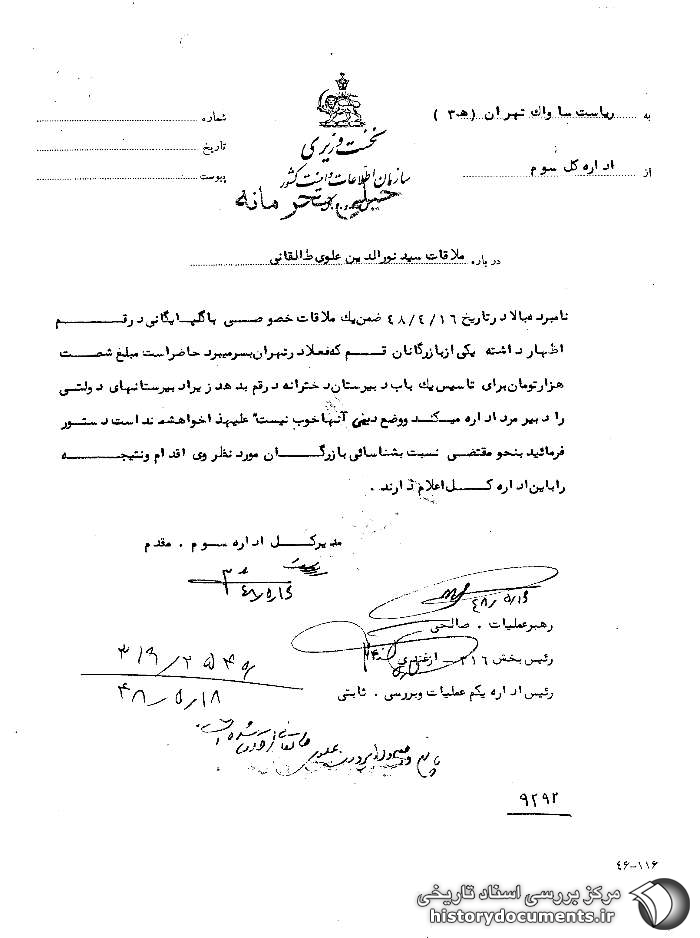 به ریاست ساواک تهران (ه‍ ۳)
شماره
از اداره کل سوم
تاریخ
پیوست
نخست وزیری
سازمان اطلاعات و امنیت کشور
خیلی محرمانه
درباره ملاقات سید نورالدین علوی طالقانی
نامبرده بالا در تاریخ ۴۸/۴/۱۶ ضمن یک ملاقات خصوصی با گلپایگانی در قم
اظهار داشته یکی از بازرگانان قم که فعلا در تهران بسر میبرد حاضر است مبلغ شصت
هزار تومان برای تاسیس یک باب دبیرستان دخترانه در قم بدهد زیرا دبیرستانهای دولتی
را دبیر مرد اداره میکند و وضع دینی آنها خوب نیست" علیهذا خواهشمند است دستور
فرمائید بنحو مقتضی نسبت بشناسائی بازرگان مورد نظر وی اقدام و نتیجه
را باین اداره کل اعلام دارند .
مدیر کل اداره سوم . مقدم
۴۸/۵/۱۶
رهبر عملیات . صالحی
رئیس بخش ۳۱۶ - ازغندی
رئیس اداره یکم عملیات و بررسی . ثابتی
۴۸/۵/۱۸
۹۲۹۲
۴۶-۱۱۶
مرکز بررسی اسناد تاریخی
historydocuments.ir